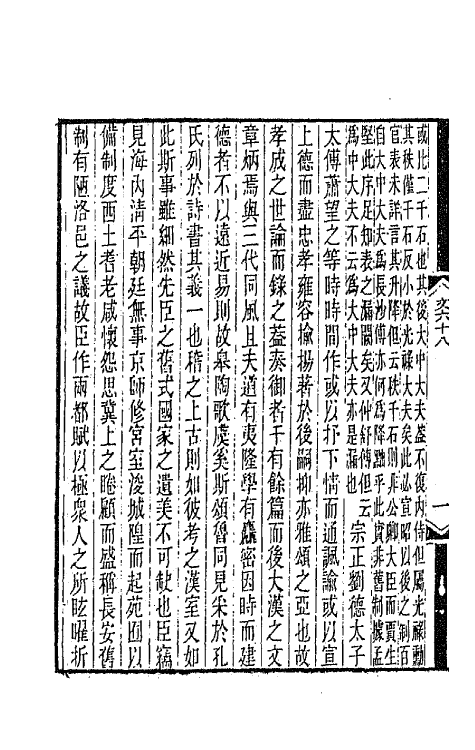 或比二千石也其後大中大夫蓋不復內侍但屬光祿勳
其秩僅千石反小於光祿大夫矣此必宣昭以後之制百
官表未詳言其升降但云秩千石則非公卿大臣而賈生
自大中大夫爲長沙傅亦何爲降黜乎此實非舊制據孟
堅此序足知表之漏闕矣又仲舒傳但云
爲中大夫不云爲大中大夫亦是漏也
宗正劉德太子
太傅蕭望之等時時間作或以抒下情而通諷諭或以宣
上德而盡忠孝雍容揄揚著於後嗣抑亦雅頌之亞也故
孝成之世論而錄之蓋奏御者千有餘篇而後大漢之文
章炳焉與三代同風且夫道有夷隆學有麤密因時而建
德者不以遠近易則故皋陶歌虞奚斯頌魯同見采於孔
氏列於詩書其義一也稽之上古則如彼考之漢室又如
此斯事雖細然先臣之舊式國家之遺美不可缺也臣竊
見海內淸平朝廷無事京師修宮室浚城隍而起苑囿以
備制度西土耆老咸懷怨思冀上之睠顧而盛稱長安舊
制有陋洛邑之議故臣作兩都賦以極衆人之所眩曜折
一